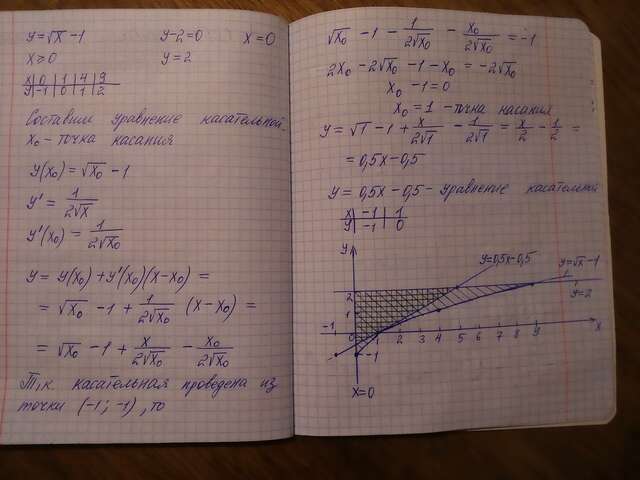 y=√x -1 y-2=0 x=0
x≥0 y=2
x 0 1 4 9
y -1 0 1 2
Составим уравнение касательной.
x₀ - точка касания
y(x₀) = √x₀ - 1
y' = 1/(2√x)
y'(x₀) = 1/(2√x₀)
y = y(x₀) + y'(x₀)(x-x₀) =
= √x₀ - 1 + 1/(2√x₀) (x-x₀) =
= √x₀ - 1 + x/(2√x₀) - x₀/(2√x₀)
Т.к. касательная проведена из
точки (-1; -1), то
√x₀ - 1 - 1/(2√x₀) - x₀/(2√x₀) = -1
2x₀ - 2√x₀ - 1 - x₀ = -2√x₀
x₀ - 1 = 0
x₀ = 1 - точка касания
y = √1 - 1 + x/(2√1) - 1/(2√1) = x/2 - 1/2 =
= 0,5x - 0,5
y = 0,5x - 0,5 - уравнение касательной
x -1 1
y -1 0
y
y=0,5x-0,5
y=√x -1
y=2
2
1
-1 0 1 2 3 4 5 6 7 8 9 x
-1
x=0